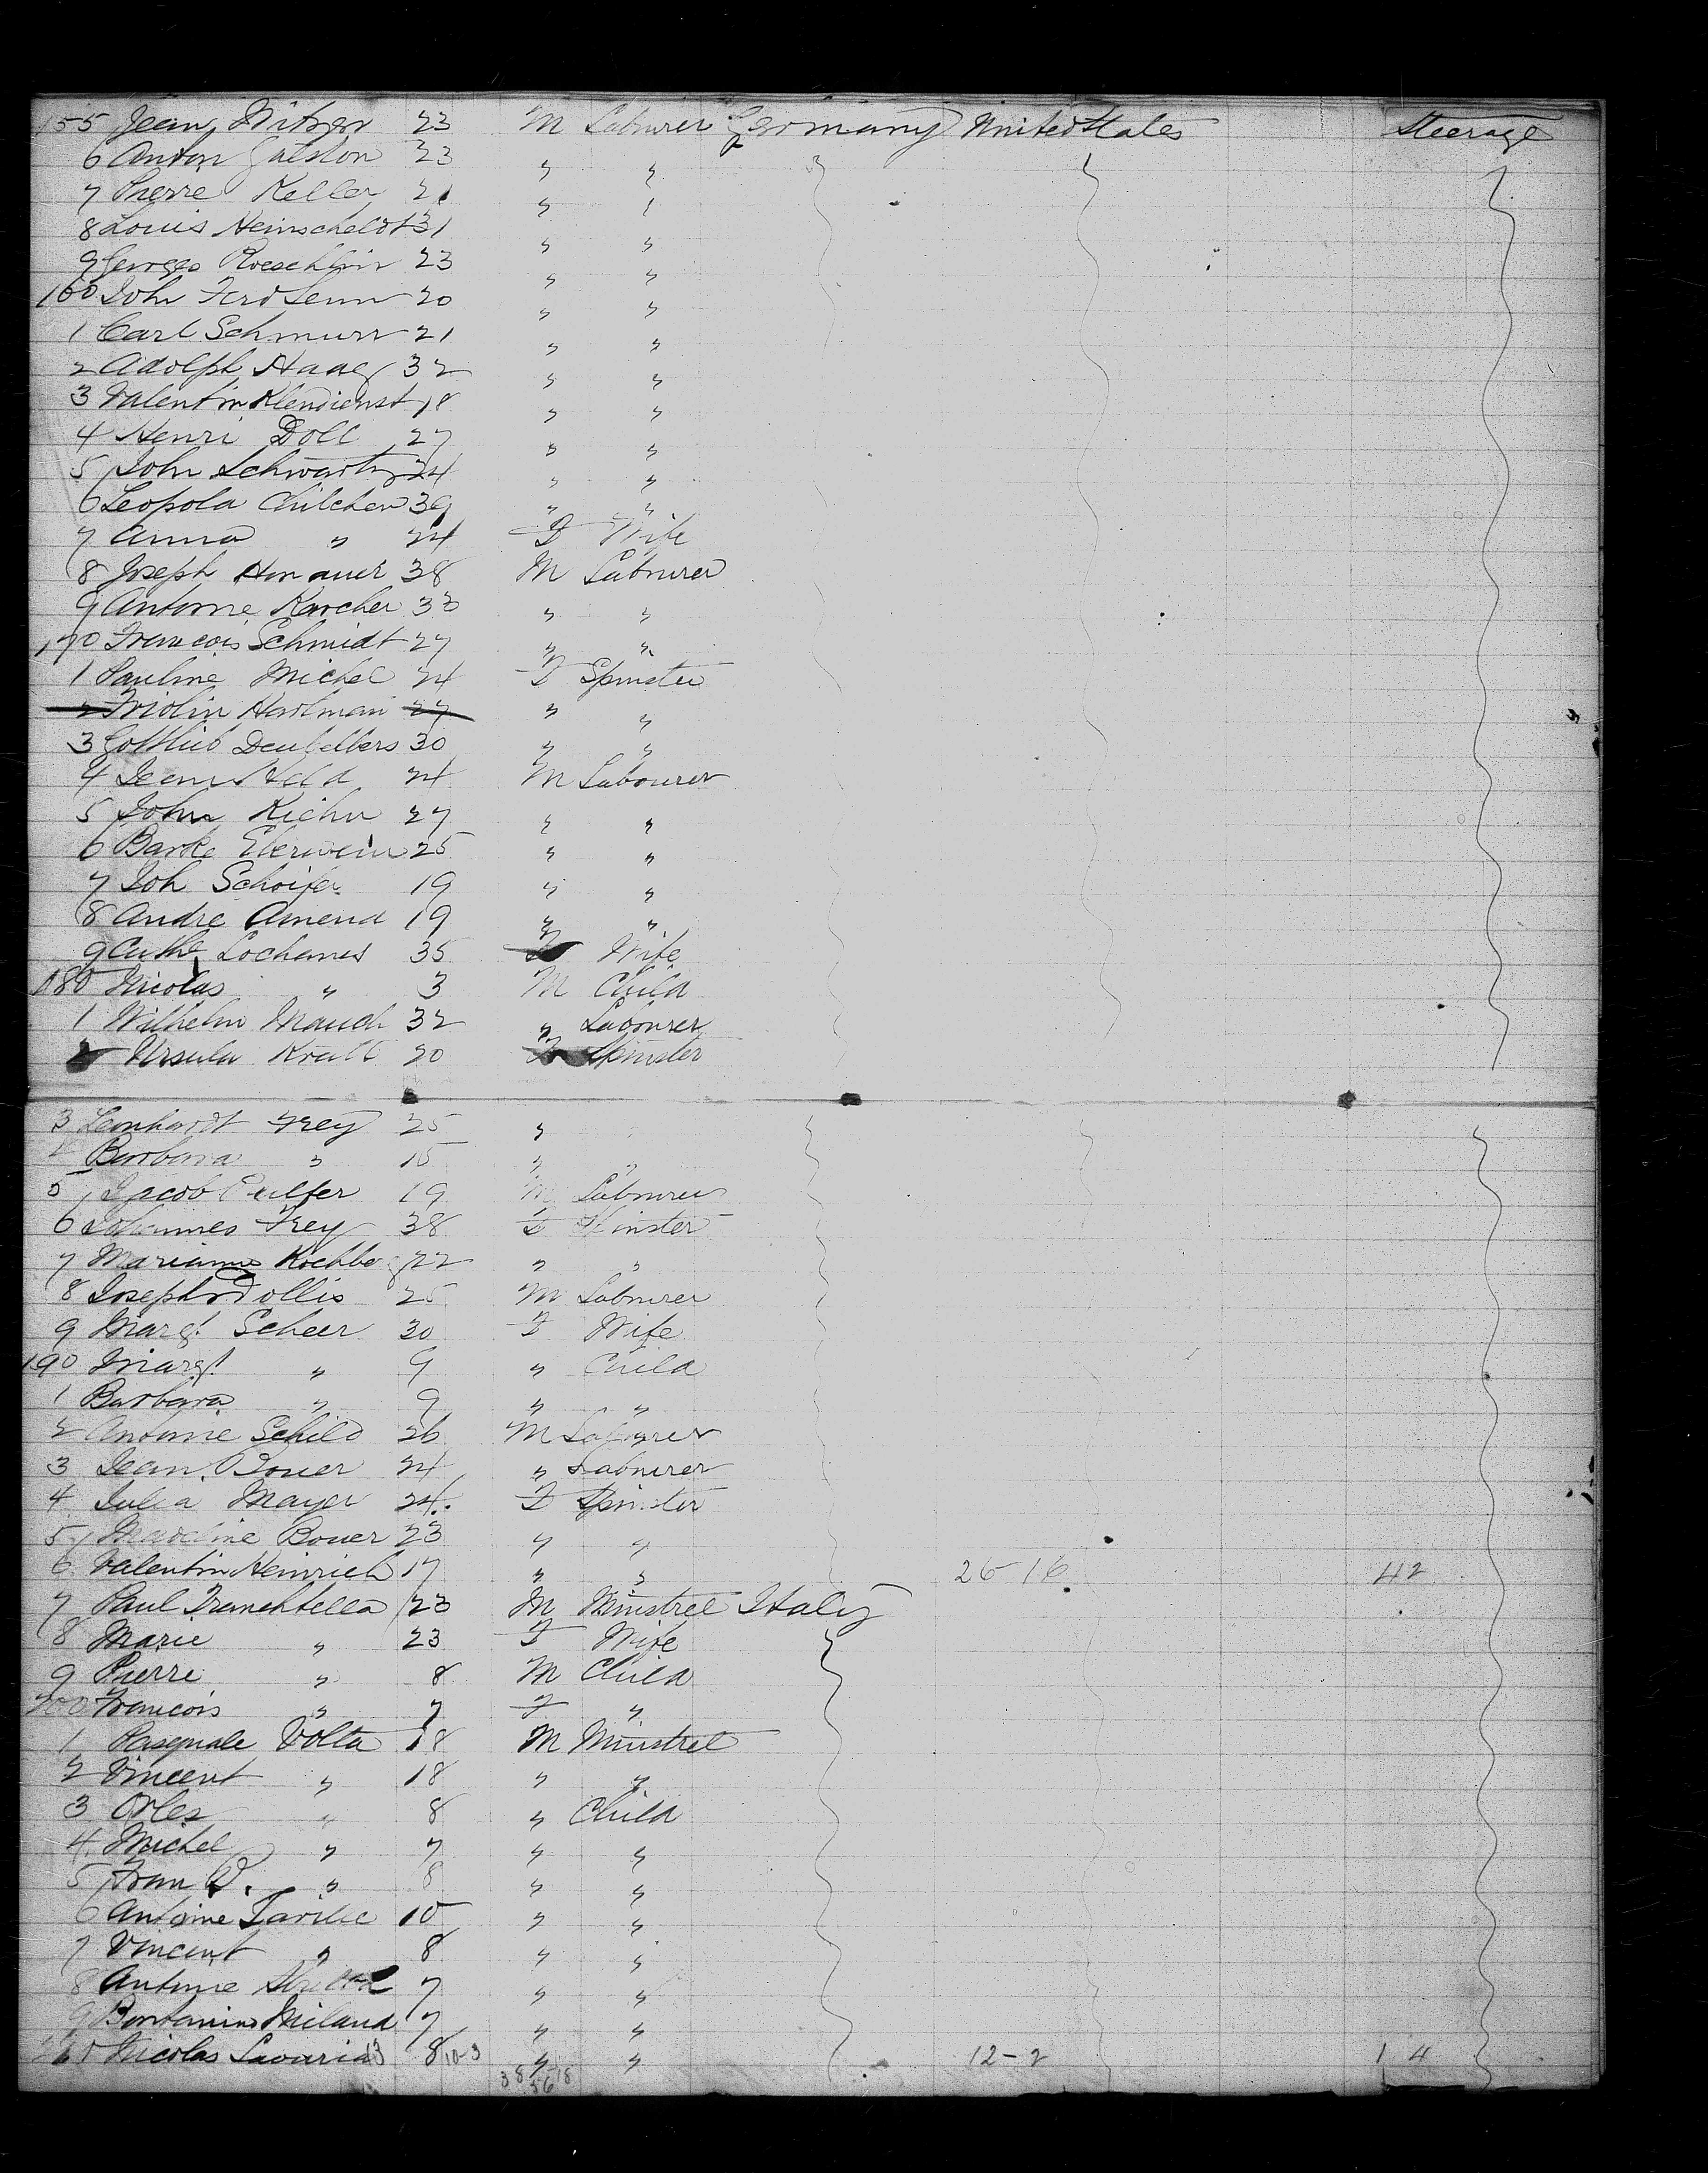 155 Jean Mitzger 23 M Labourer Germany United States Steerage
6 Anton Galston 23 " "
7 Pierre Keller 21 " "
8 Louis Heinscheldt 31 " "
9 Georges Roeschlin 23 " "
160 John Ferd Senn 20 " "
1 Carl Schmurr 21 " "
2 Adolph Haag 32 " "
3 Valentin Klendienst 18 " "
4 Henri Doll 27 " "
5 John Schwartz 24 " "
6 Leopold Chilcher 39 " "
7 Anna " 24 F Wife
8 Joseph Honauer 38 M Labourer
9 Antoine Karcher 33 " "
170 Francois Schmidt 27 " "
1 Pauline Michel 24 F Spinster
2 Fridlin Hartman 27 " "
3 Gottlieb 30 " "
4 Jean Held 24 M Labourer
5 John Kichn 27 " "
6 Eberwein 25 " "
7 Joh Schoifer 19 " "
8 Andre Amend 19 " "
9 Cath Lochames 35 F Wife
180 Nicolas " 3 M Child
1 Wilhelm Mauch 32 " Labourer
2 Ursula Kraft 20 F Spinster
3 Leonhardt Frey 25 "
4 Barbara " 15 " "
5 Jacob Pulfer 19 M Labourer
6 Johannes Frey 38 F Spinster
7 Marianne 22 " "
8 Joseph Dollis 25 M Labourer
9 Margt Scheer 30 F Wife
190 Margt " 9 " Child
1 Barbara " 9 " "
2 Antoine Schild 26 M Labourer
3 Jean Bouer 24 " Labourer
4 Julia Mayer 24 F Spinster
5 Madeline Bouer 23 " "
6 Valentin Heinrich 17 " " 26-16 42
7 Paul Franchtella 23 M Minstrel Italy
8 Marie " 23 F Wife
9 Pierre " 8 M Child
200 Francois " 7 F "
1 Pasquale Volta 18 M Minstrel
2 Vincent " 18 " "
3 Orles " 8 " Child
4 Michel " 7 " "
5 Fran " 8 " "
6 Antoine Tarilic 10 " "
7 Vincent " 8 " "
8 Antoine 7 " "
9 Miland 7 " "
210 Nicolas Lavaria 13 8 10-3 " " 12-2 14
38 18
56